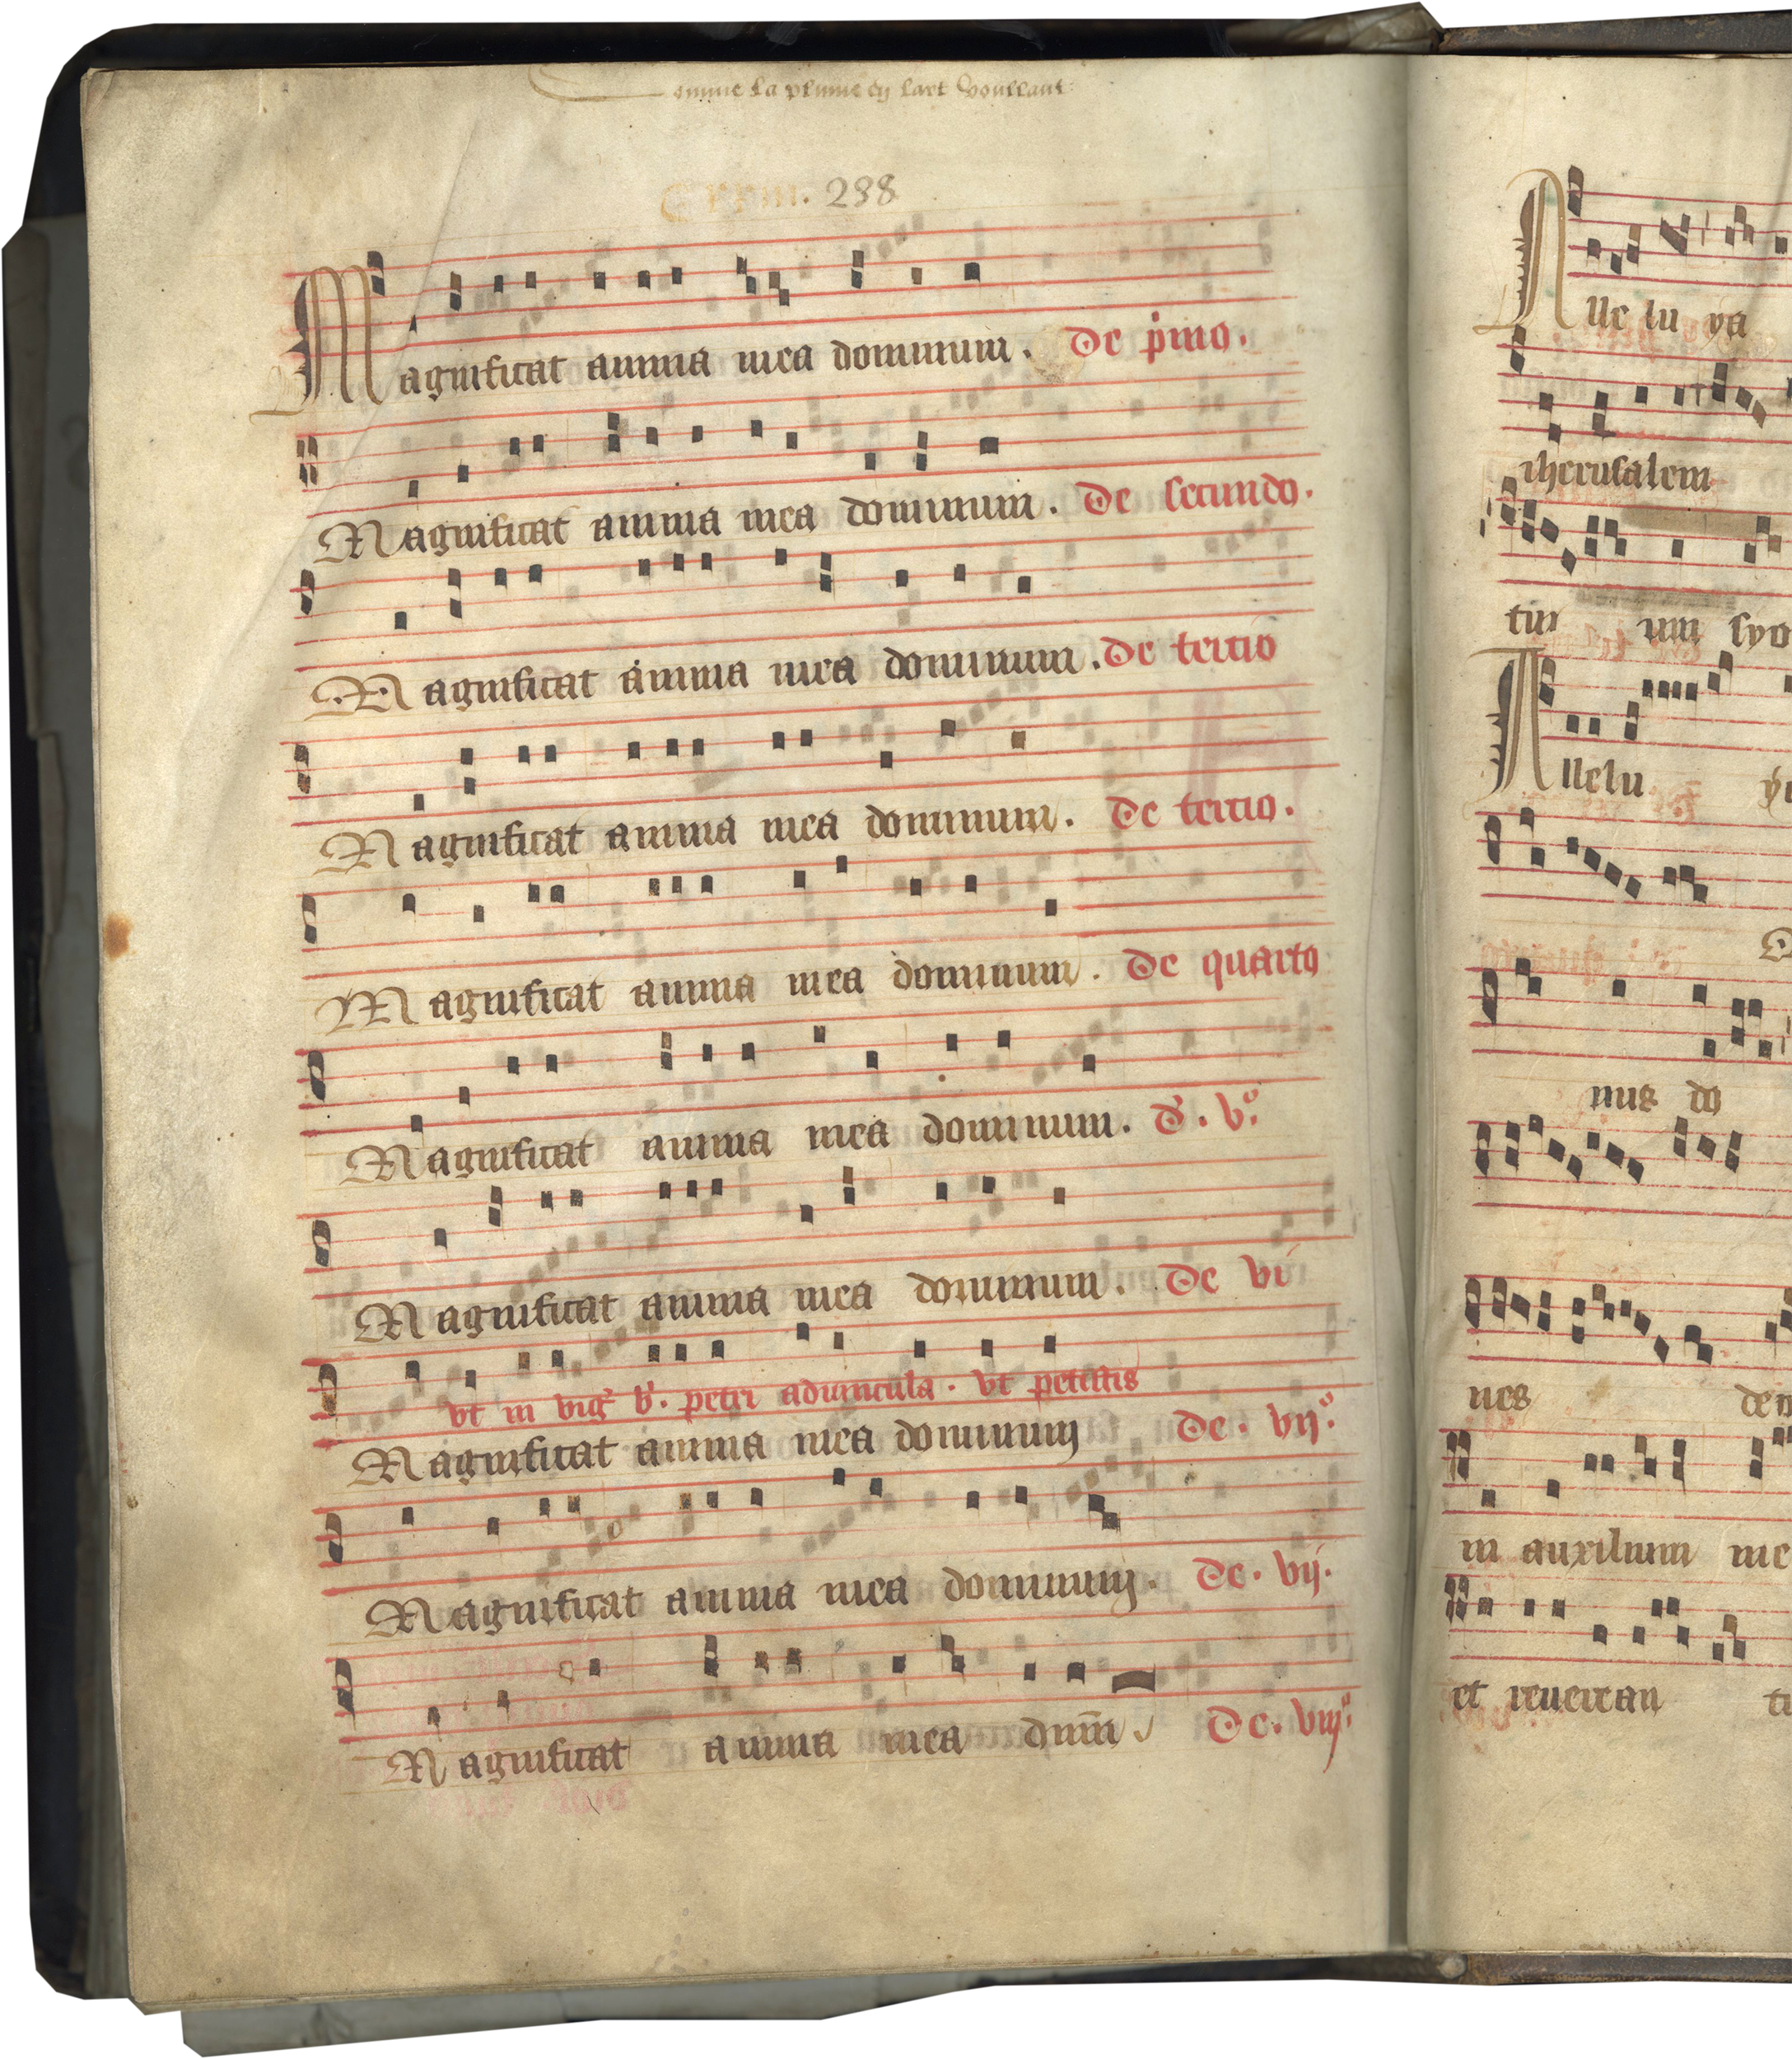 omme la plume en lart voullant
. 238
Magnificat anima mea dominum. De pimo.
Magnificat anima mea dominum. De secundo.
Magnificat anima mea dominum. De tertio
Magnificat anima mea dominum. De tertio.
Magnificat anima mea dominum. De quarto
Magnificat anima mea dominum. d'. vº.
Magnificat anima mea dominum. De vi
vt in vig' b'. petri aduincula. vt petitis
Magnificat anima mea dominum De. vijº.
Magnificat anima mea dominum. De. vij.
Magnificat anima mea dnm̄ De. viijº.
Alle lu ya
iherusalem
um syo
Allelu
nus do
nes
in auxilium me
et reuertan